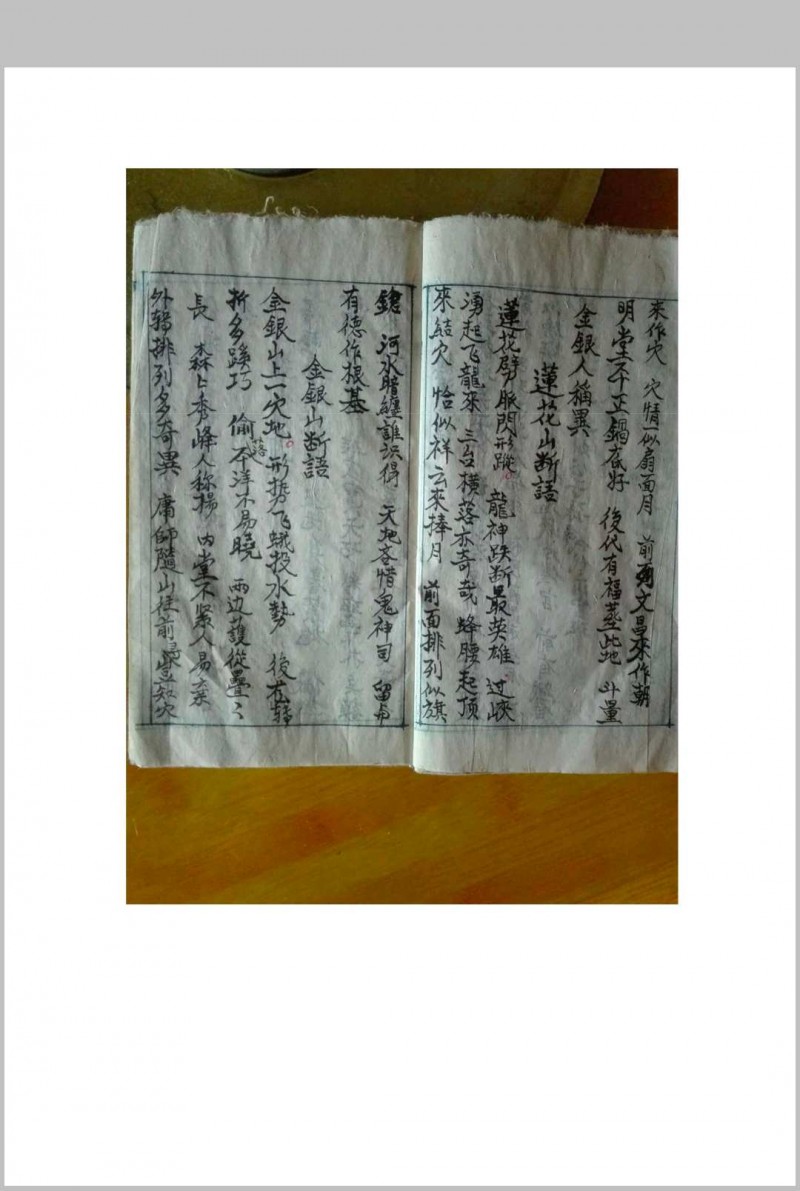 来作穴 穴情一似扇面月 前列文昌來作朝
明堂不正鍋底好 後代有福葬此地 斗量
金銀人稱異
蓮花山断語
蓮花劈脈閃形蹤 龍神跌断最英雄 过峽
湧起飞龍來 三台横落亦奇哉 蜂腰起顶
來結穴 恰似祥云來捧月 前面排列似旗
鎗 河水暗纏誰识得 天地吝惜鬼神司 留与
有德作根基
金銀山断語
金銀山上一穴地 形势飞蛾投水勢 後在轉
折多蹊巧 偷落平洋不易曉 两边護從疊々
長 森森秀峰人称揚 内堂不紧人易棄
外转排列多奇異 庸師隨山往前尋 豈知穴